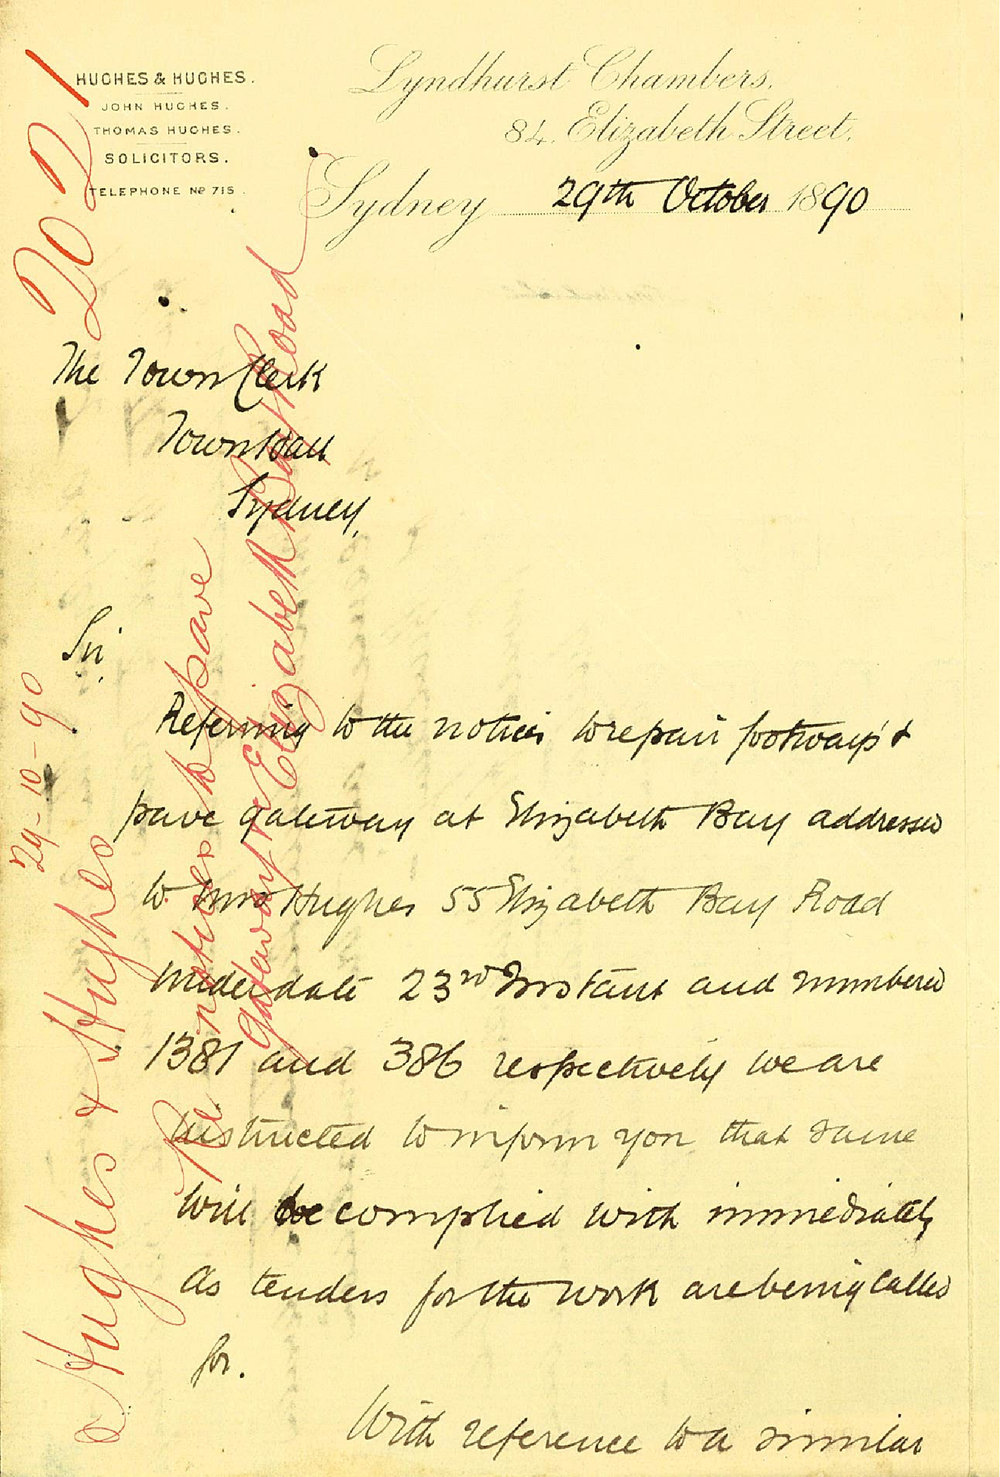 HUGHES & HUGHES.
JOHN HUGHES.
THOMAS HUGHES.
SOLICITORS.
TELEPHONE No 715.
Lyndhurst Chambers,
84, Elizabeth Street,
Sydney 29th October 1890
The Town Clerk
Town Hall
Sydney.
Sir,
Referring to the notices to repair footways &
pave gateway at Elizabeth Bay addressed
to Mrs Hughes 55 Elizabeth Bay Road
under date 23rd Instant and numbered
1381 and 386 respectively we are
instructed to inform you that same
will be complied with immediately
as tenders for the work are being called
for.
With reference to a similar
2021
29-10-90
Hughes & Hughes
Re notices to pave
gateway re Elizabeth Bay Road